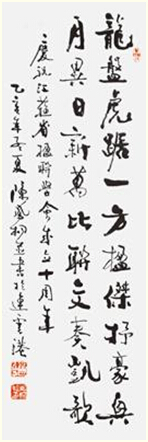 龍盤虎踞一方楹傑抒豪興
月異日新萬比聯文奏凱歌
慶祝江蘇省楹聯學會成立十周年
乙亥年夏陳鳳桐並書於連雲港